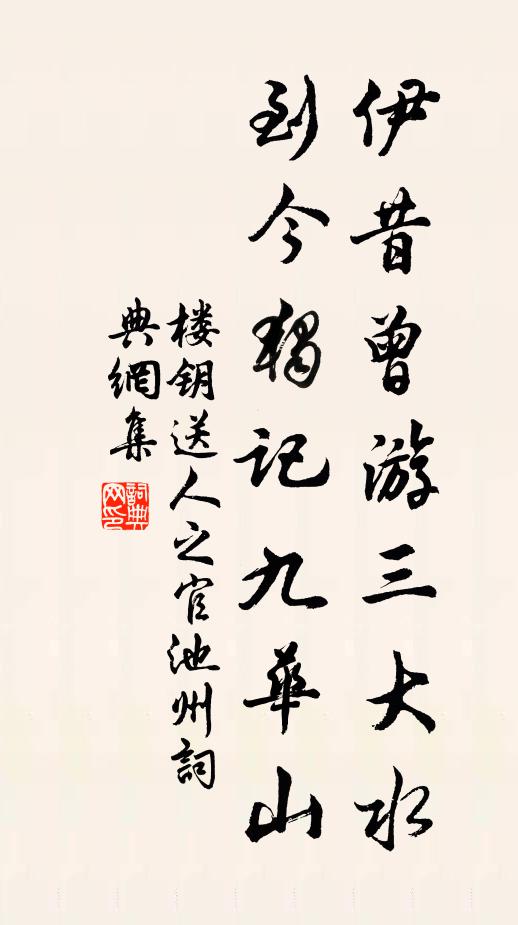 伊昔曾游三大水
到今犹记九華山
楼钥送人之官池州詞
典網集
詞典
网印